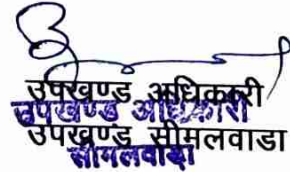 उपखण्ड अधिकारी
उपखण्ड अधिकारी
उपखण्ड सीमलवाडा
सीमलवाडा